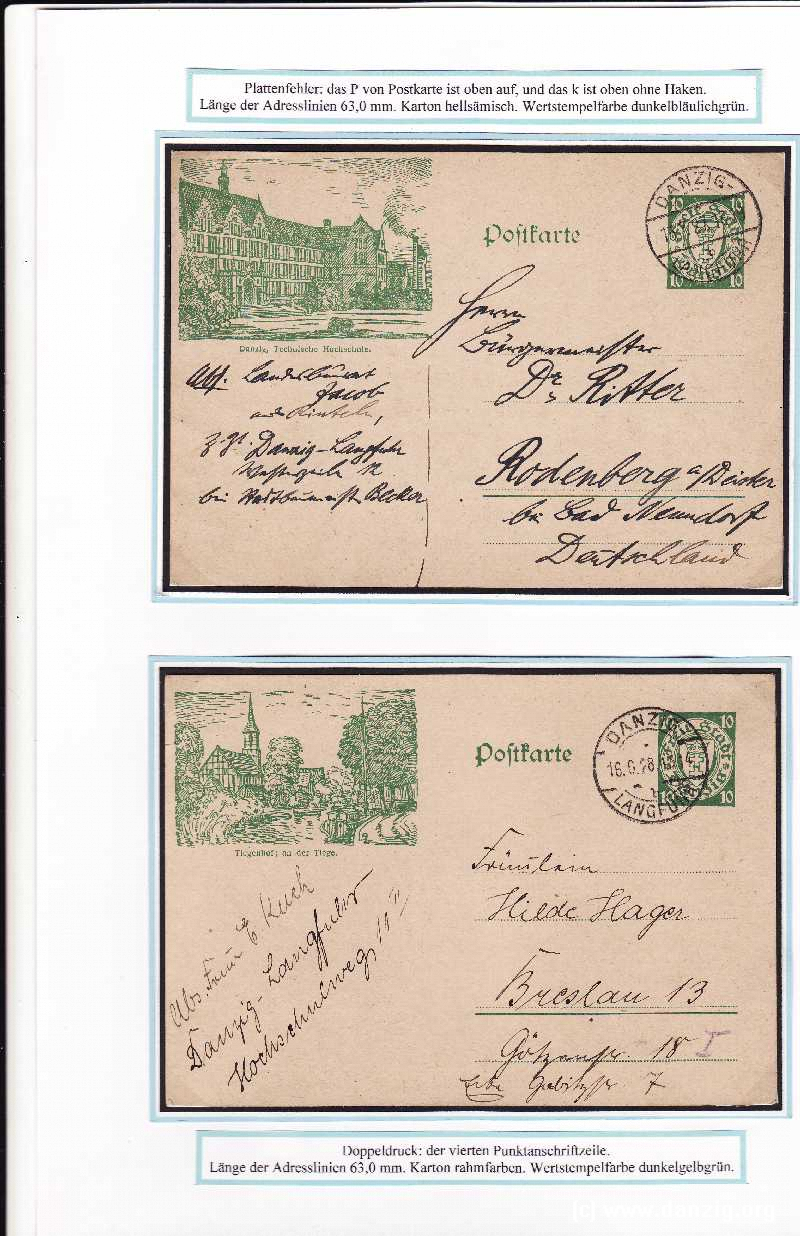 Plattenfehler: das P von Postkarte ist oben auf, und das k ist oben ohne Haken.
Länge der Adresslinien 63,0 mm. Karton hellsämisch. Wertstempelfarbe dunkelbläulichgrün.
DANZIG-
10 10
Poſtkarte
10 10
Danzig, Technische Hochschule.
Herrn
Bürgermeister
Dr. Ritter
Rodenberg a/Deister
bei Bad Nenndorf
Deutschland
Abs. Landesbaurat
Jacob
aus Rinteln,
z. Zt. Danzig-Langfuhr
bei Becker
DANZIG
16.6.28
LANGFUHR
10
Poſtkarte
10
Tiegenhof; an der Tiege.
Fräulein
Hilde Hager
Breslau 13
18 I
7
Abs. Frau Kuch
Danzig-Langfuhr
Hochschulweg
Doppeldruck: der vierten Punktanschriftzeile.
Länge der Adresslinien 63,0 mm. Karton rahmfarben. Wertstempelfarbe dunkelgelbgrün.
(c) www.danzig.org